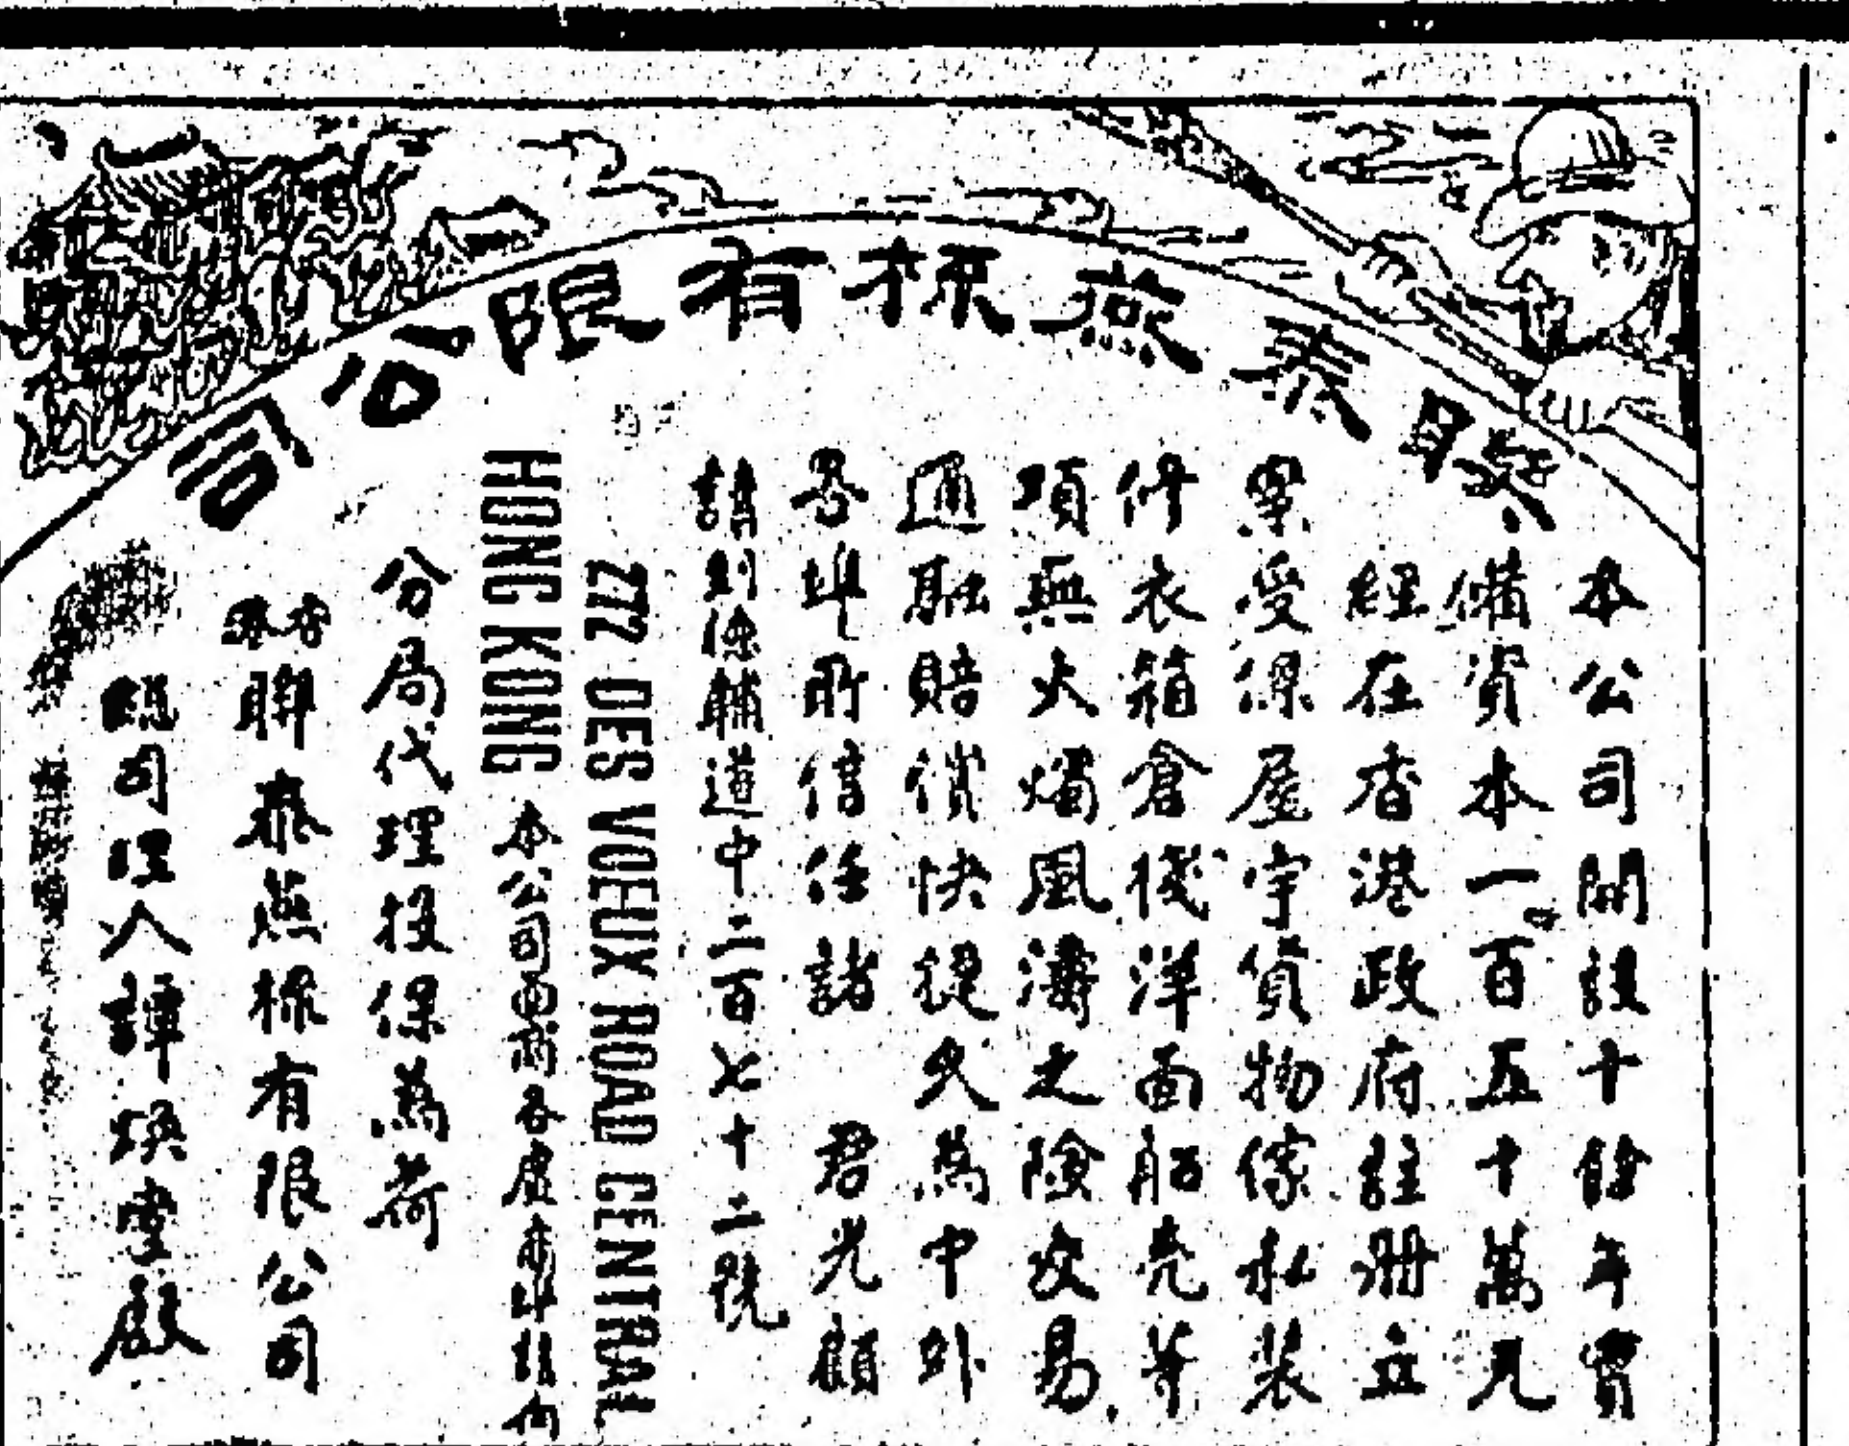 聯泰燕梳有限公司
本公司開設十餘年實
備資本一百五十萬元
經在香港政府註冊立
案受保屋宇貨物傢私裝
修衣箱倉棧洋面船壳等
項無火燭風濤之險交易
通融賠償快捷久為中外
各埠所信任諸 君光顧
請到德輔道中二百七十二號
272 DES VOEUX ROAD CENTRAL
HONG KONG 本公司而於各處商埠請向
分局代理投保為荷
香港聯泰燕梳有限公司
總司理人譚煥堂啟